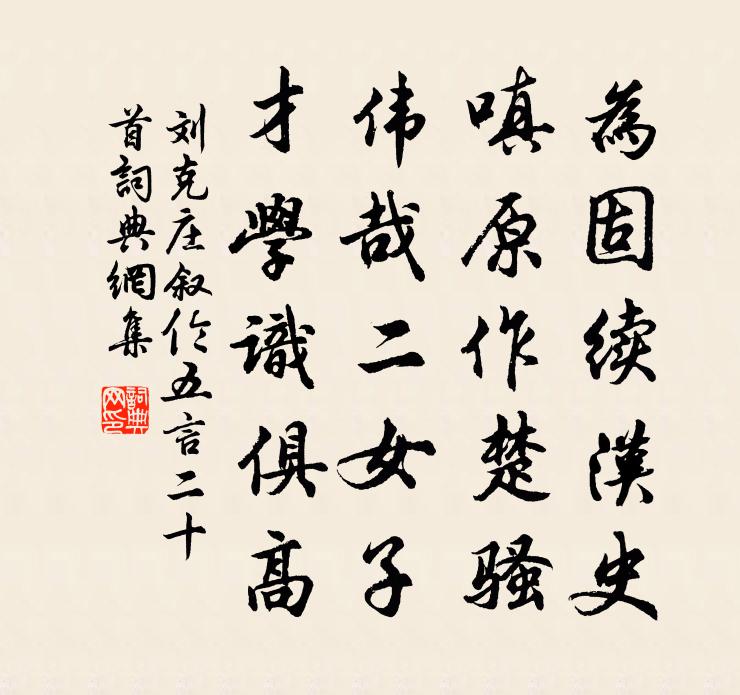 為固续漢史
嗔原作楚骚
伟哉二女子
才學識俱高
刘克庄叙伦五言二十
首詞典網集
詞典网印